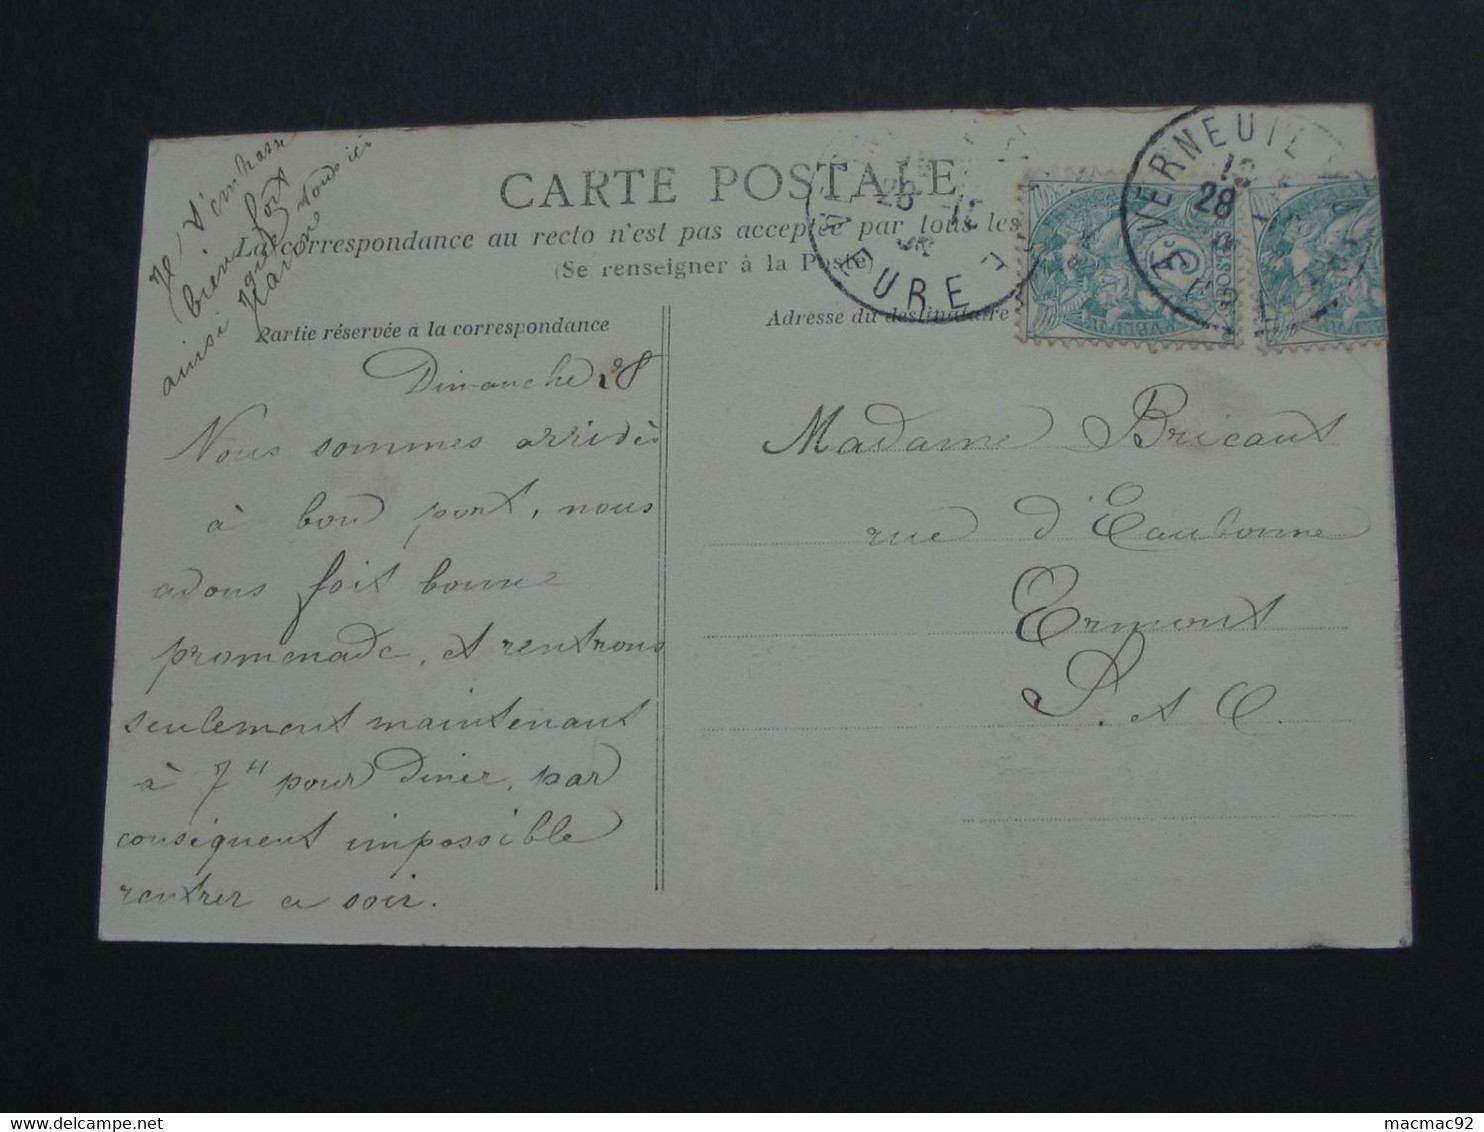 Je t'embrasse
bien fort
ainsi que
tous ici
CARTE POSTALE
La correspondance au recto n'est pas acceptée par tous les
(Se renseigner à la Poste)
Partie réservée à la correspondance
Adresse du destinataire
VERNEUIL
28
EURE
EURE
5c
POSTES
Dimanche 28
Nous sommes arrivés
à bon port, nous
avons fait bonne
promenade, et rentrons
seulement maintenant
à 7h pour diner, par
conséquent impossible
rentrer ce soir.
Madame Bricaut
rue d'Eaubonne
Ermont
S. et O.
macmac92